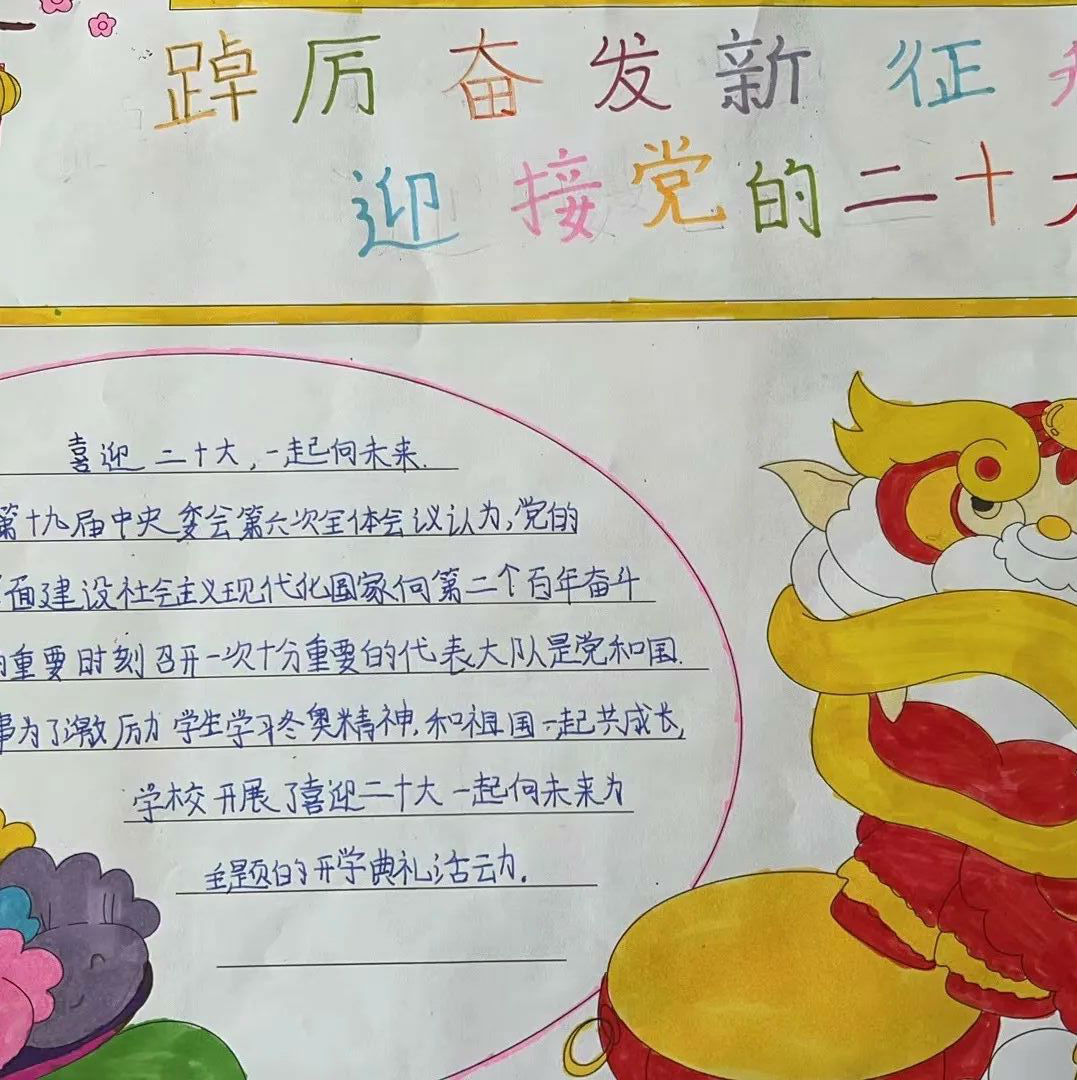 踔厉奋发新征
迎接党的二十大
喜迎二十大,一起向未来.
第十九届中央委会第六次全体会议认为,党的
面建设社会主义现代化国家向第二个百年奋斗
的重要时刻召开一次十分重要的代表大队是党和国.
事为了激厉力学生学习冬奥精神.和祖国一起共成长,
学校开展了喜迎二十大一起向未来为
主题的开学典礼活动.